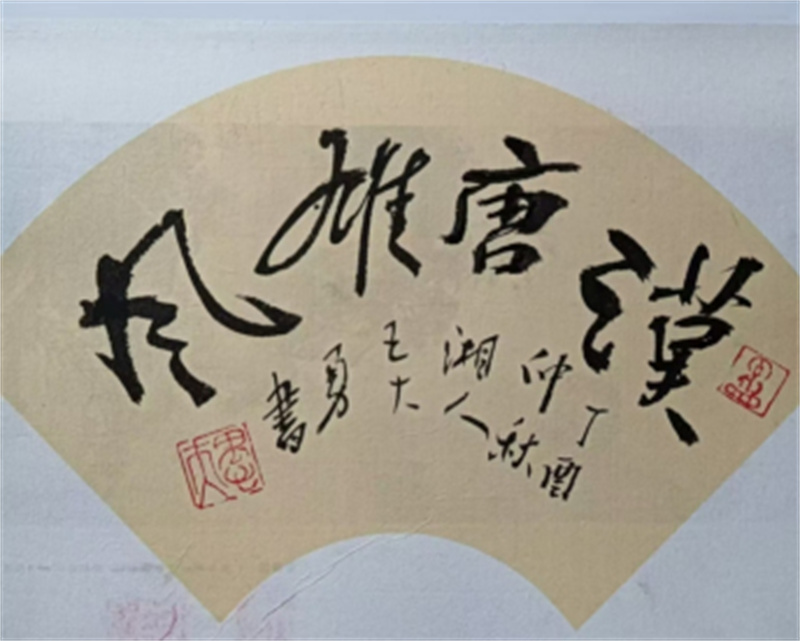 漢唐雄风
丁酉
仲秋
湘人
王大
勇
書